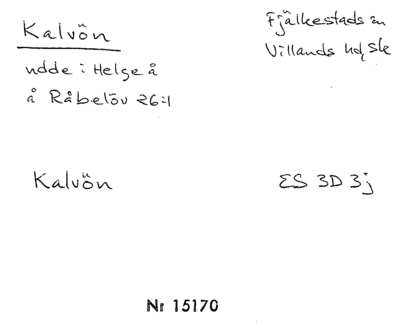 Kalvön
Fjälkestads sn
Villands hd, Sk
udde i Helge å
å Råbelöv 26:1
Kalvön
ES 3D 3j
Nr 15170